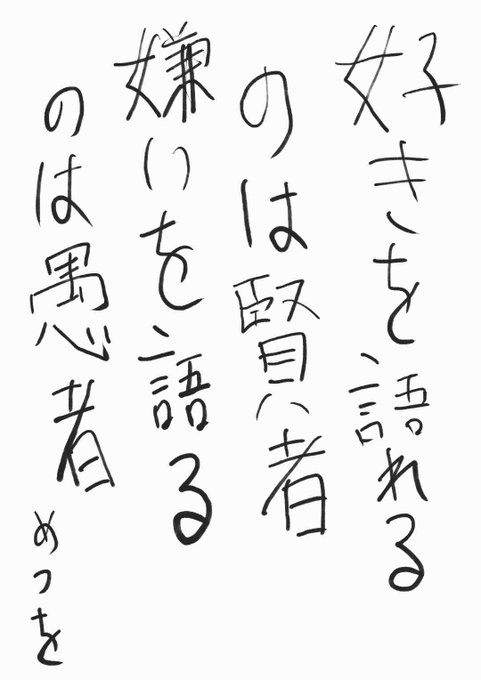 好きを語れる
のは賢者
嫌いを語る
のは愚者
めつを